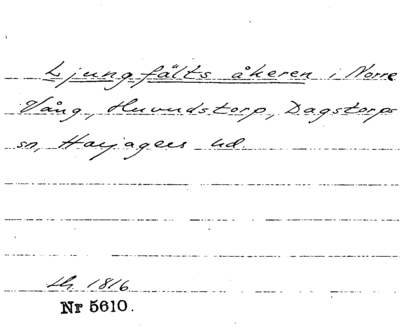 Ljungfälts åkeren i Norre
Vång, Huvudstorp, Dagstorps
sn, Harjagers hd.
Lh. 1816
Nr 5610.